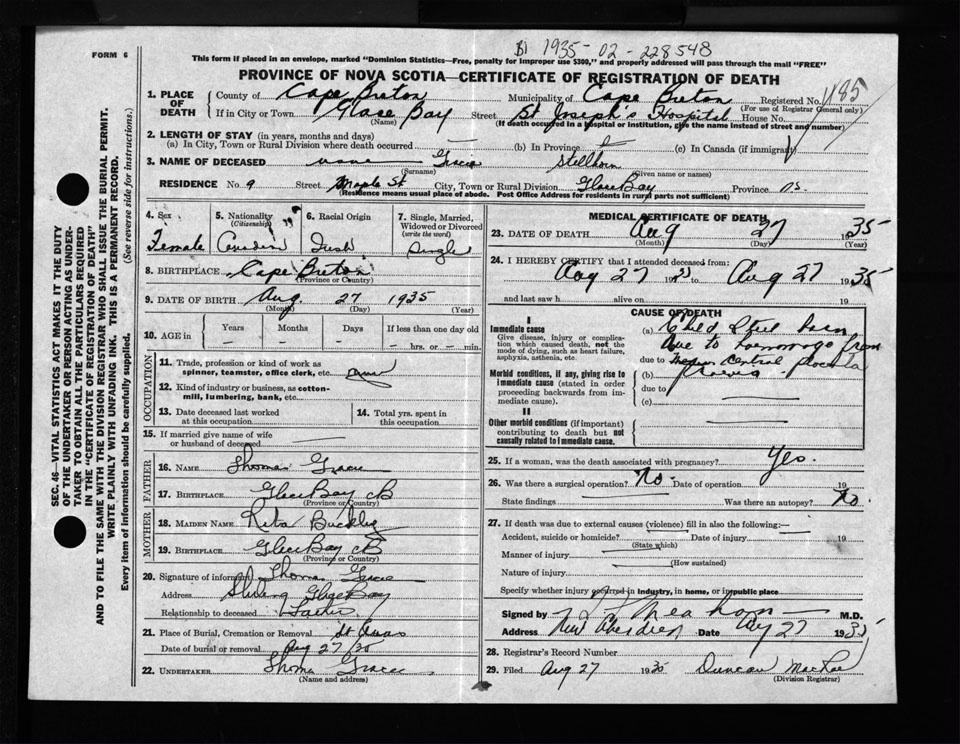 FORM 6
B 1935-02-228548
This form if placed in an envelope, marked "Dominion Statistics—Free, penalty for improper use $300," and properly addressed will pass through the mail "FREE"
PROVINCE OF NOVA SCOTIA—CERTIFICATE OF REGISTRATION OF DEATH
1185
1. PLACE OF DEATH { County of Cape Breton Municipality of Cape Breton Registered No. (For use of Registrar General only)
If in City or Town Glace Bay (Name) Street St Joseph's Hospital House No.
(If death occurred in a hospital or institution, give the name instead of street and number)
2. LENGTH OF STAY (in years, months and days)
(a) In City, Town or Rural Division where death occurred (b) In Province (c) In Canada (if immigrant)
3. NAME OF DECEASED Gracie Stillborn
(Surname) (Given name or names)
RESIDENCE No. 9 Street Maple St. City, Town or Rural Division Glace Bay Province NS.
(Residence means usual place of abode. Post Office Address for residents in rural parts not sufficient)
4. Sex 5. Nationality (Citizenship) 6. Racial Origin 7. Single, Married, Widowed or Divorced (write the word)
Female Canadian Irish Single
8. BIRTHPLACE Cape Breton
(Province or Country)
9. DATE OF BIRTH Aug. 27 1935
(Month) (Day) (Year)
10. AGE in { Years Months Days If less than one day old
– – – – hrs. or – min.
OCCUPATION
11. Trade, profession or kind of work as spinner, teamster, office clerk, etc.
12. Kind of industry or business, as cotton-mill, lumbering, bank, etc.
13. Date deceased last worked at this occupation 14. Total yrs. spent in this occupation
15. If married give name of wife or husband of deceased
FATHER
16. NAME Thomas Gracie
17. BIRTHPLACE Glace Bay CB
(Province or Country)
MOTHER
18. MAIDEN NAME Rita Buckley
19. BIRTHPLACE Glace Bay CB
(Province or Country)
20. Signature of informant Thomas Gracie
Address Sterling Glace Bay
Relationship to deceased Father
21. Place of Burial, Cremation or Removal St Annes
Date of burial or removal Aug 27/35
22. UNDERTAKER Thomas Gracie
(Name and address)
MEDICAL CERTIFICATE OF DEATH
23. DATE OF DEATH Aug 27 1935
(Month) (Day) (Year)
24. I HEREBY CERTIFY that I attended deceased from:
Aug 27 1935 Aug 27 1935
and last saw h alive on 19
CAUSE OF DEATH
I
Immediate cause
Give disease, injury or complication which caused death, not the mode of dying, such as heart failure, asphyxia, asthenia, etc.
Morbid conditions, if any, giving rise to immediate cause (stated in order proceeding backwards from immediate cause).
II
Other morbid conditions (if important) contributing to death but not causally related to immediate cause.
(a) Child Still born
due to haemorrage from
due to central placenta
(b) praevia
due to
(c)
25. If a woman, was the death associated with pregnancy? Yes.
26. Was there a surgical operation? No. Date of operation 19
State findings Was there an autopsy? No.
27. If death was due to external causes (violence) fill in also the following:—
Accident, suicide or homicide? Date of injury 19
(State which)
Manner of injury
(How sustained)
Nature of injury
Specify whether injury occurred in industry, in home, or in public place
Signed by M.D.
Address New Aberdeen Date Aug 27 1935
28. Registrar's Record Number
29. Filed Aug 27 1935 Duncan MacRae
(Division Registrar)
SEC. 46—VITAL STATISTICS ACT MAKES IT THE DUTY
OF THE UNDERTAKER OR PERSON ACTING AS UNDER-
TAKER TO OBTAIN ALL THE PARTICULARS REQUIRED
IN THE "CERTIFICATE OF REGISTRATION OF DEATH"
AND TO FILE THE SAME WITH THE DIVISION REGISTRAR WHO SHALL ISSUE THE BURIAL PERMIT.
WRITE PLAINLY WITH UNFADING INK. THIS IS A PERMANENT RECORD.
Every item of information should be carefully supplied. (See reverse side for instructions.)